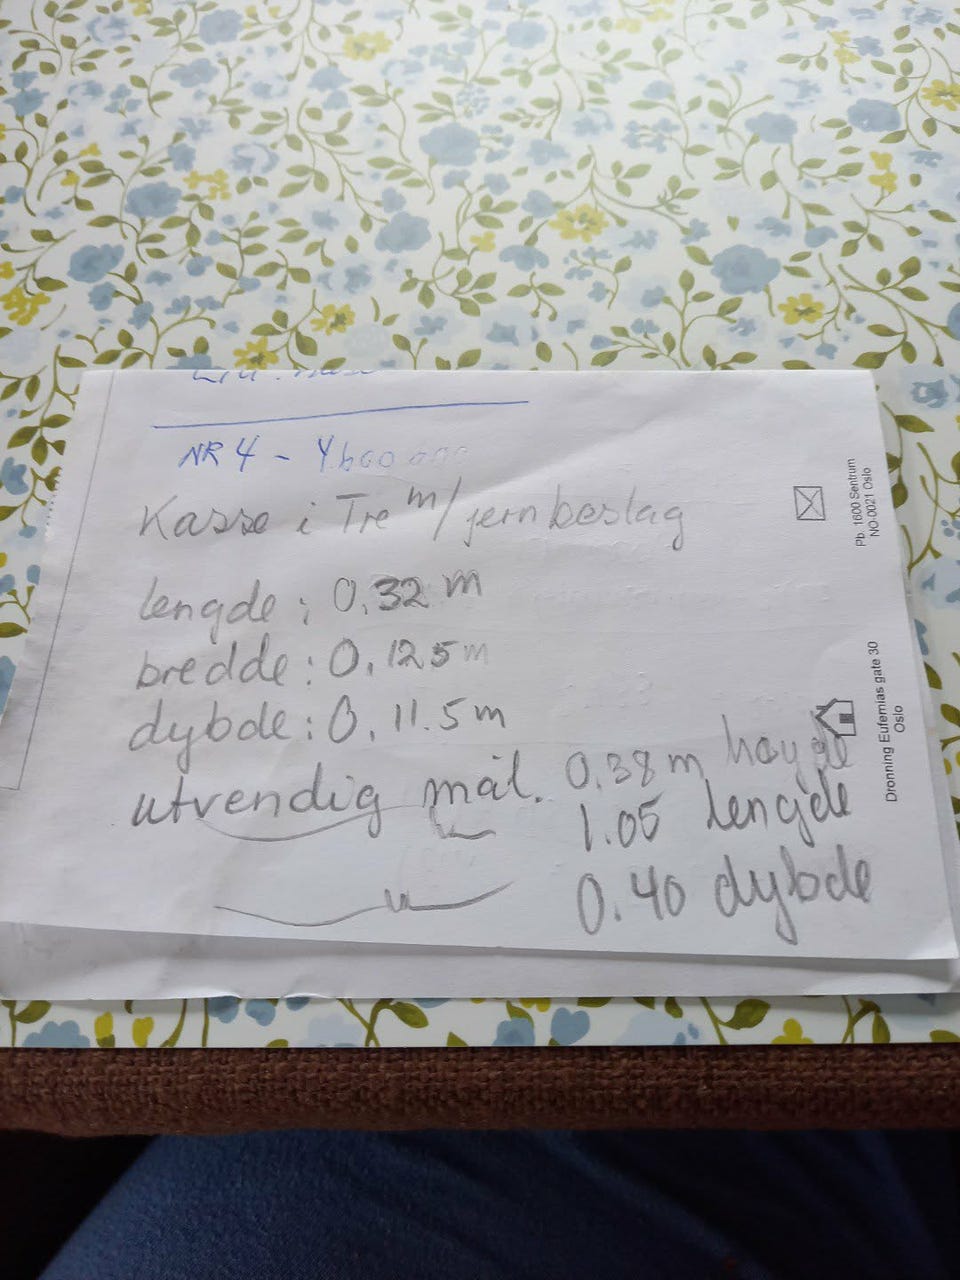 NR 4 - 4.600 000
Kasse i Tre m/jernbeslag
lengde: 0.32 m
bredde: 0.125 m
dybde: 0.11.5 m
utvendig mål. 0.38 m høyde
1.05 lengde
0.40 dybde
Pb. 1600 Sentrum
NO-0021 Oslo
Dronning Eufemias gate 30
Oslo